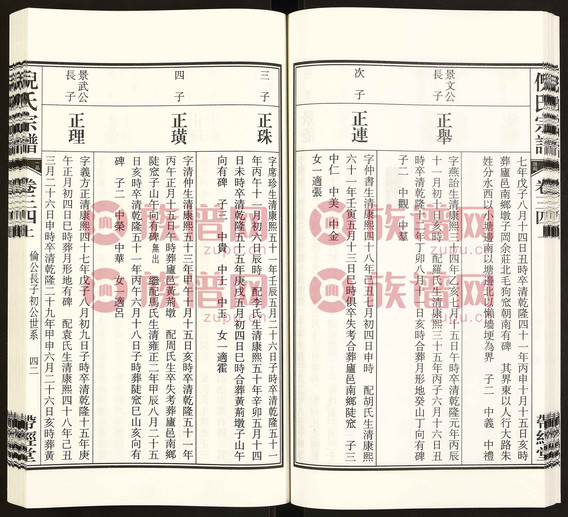 倪氏宗譜
卷三四
帶經堂
七年戊子八月十四日丑時卒清乾隆四十一年丙申十月十五日亥時
葬廬邑南鄉墩子岡余莊北毛狗窊朝南有碑 其界東以人行大路朱
姓分水西以小塘邊南以塘邊北以懶墻埂為界 子二 中義 中禮
景文公
長子
正舉
字燕詒生清康熙三十四年乙亥七月十五日午時卒清乾隆元年丙辰
十一月初一日亥時 配羅氏生清康熙三十五年丙子六月十六日丑
時卒清乾隆十二年丁卯八月 日亥時合葬月形地癸山丁向有碑
子二 中觀 中羣
次子
正連
字仲書生清康熙四十八年己丑七月初四日申時 配胡氏生清康熙
六十一年壬寅五月十三日巳時俱卒失考合葬廬邑南鄉陡窊 子三
中仁 中美 中金
女一適張
三子
正珠
字席珍生清康熙五十一年壬辰五月二十六日子時卒清乾隆五十一
年丙午十一月初六日辰時 配李氏生清康熙五十年辛卯五月十四
日未時卒清乾隆五十五年庚戌五月初四日巳時合葬黃荊墩子山午
向有碑 子三 中貴 中士 中玉 女一適霍
四子
正璜
字清仲生清康熙五十三年甲午十月十三日亥時卒清乾隆五十一年
丙午正月十五日午時葬廬邑黃荊墩 配周氏生卒失考葬廬邑南鄉
陡窊子山午向有碑無出 繼配馬氏生清雍正二年甲辰八月二十五
日 時卒清乾隆五十一年丙午六月十八日子時葬陡窊巳山亥向有
碑 子二 中榮 中華 女一適呂
景武公
長子
正理
字義方生清康熙四十七年戊子八月初九日子時卒清乾隆十五年庚
午正月初四日巳時葬月形地有碑 配袁氏生清康熙四十八年己丑
三月二十六日申時卒清乾隆二十九年甲申六月二十六日亥時葬黃
倪氏宗譜
卷三四上
倫公長子初公世系
四二
帶經堂
族譜网
zupu.cn